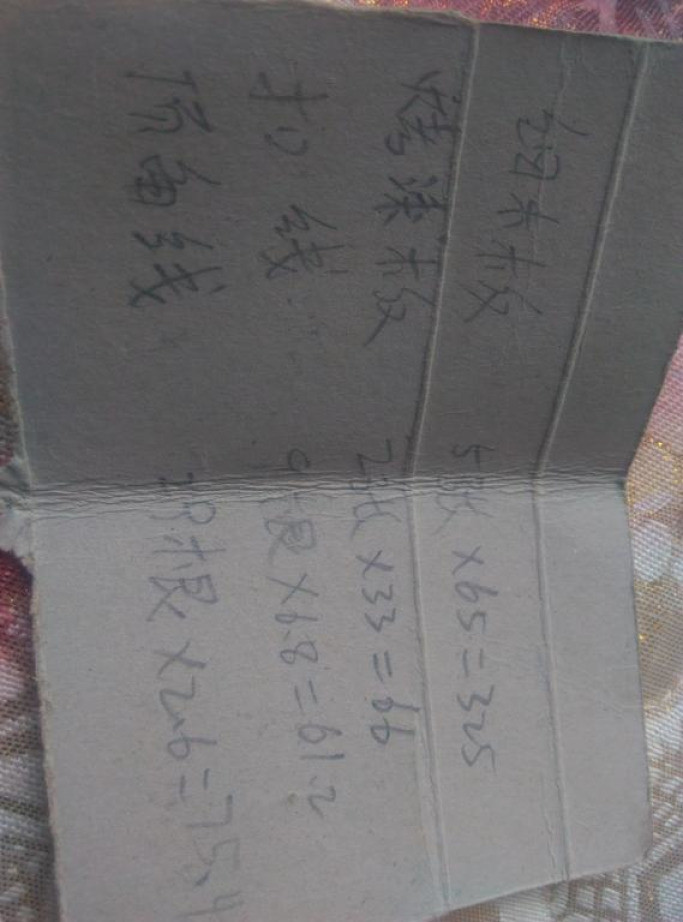 细木板 5张×65=325
烤漆板 2张×33=66
扣线 9根×6.8=61.2
阴角线 29根×2.6=75.4